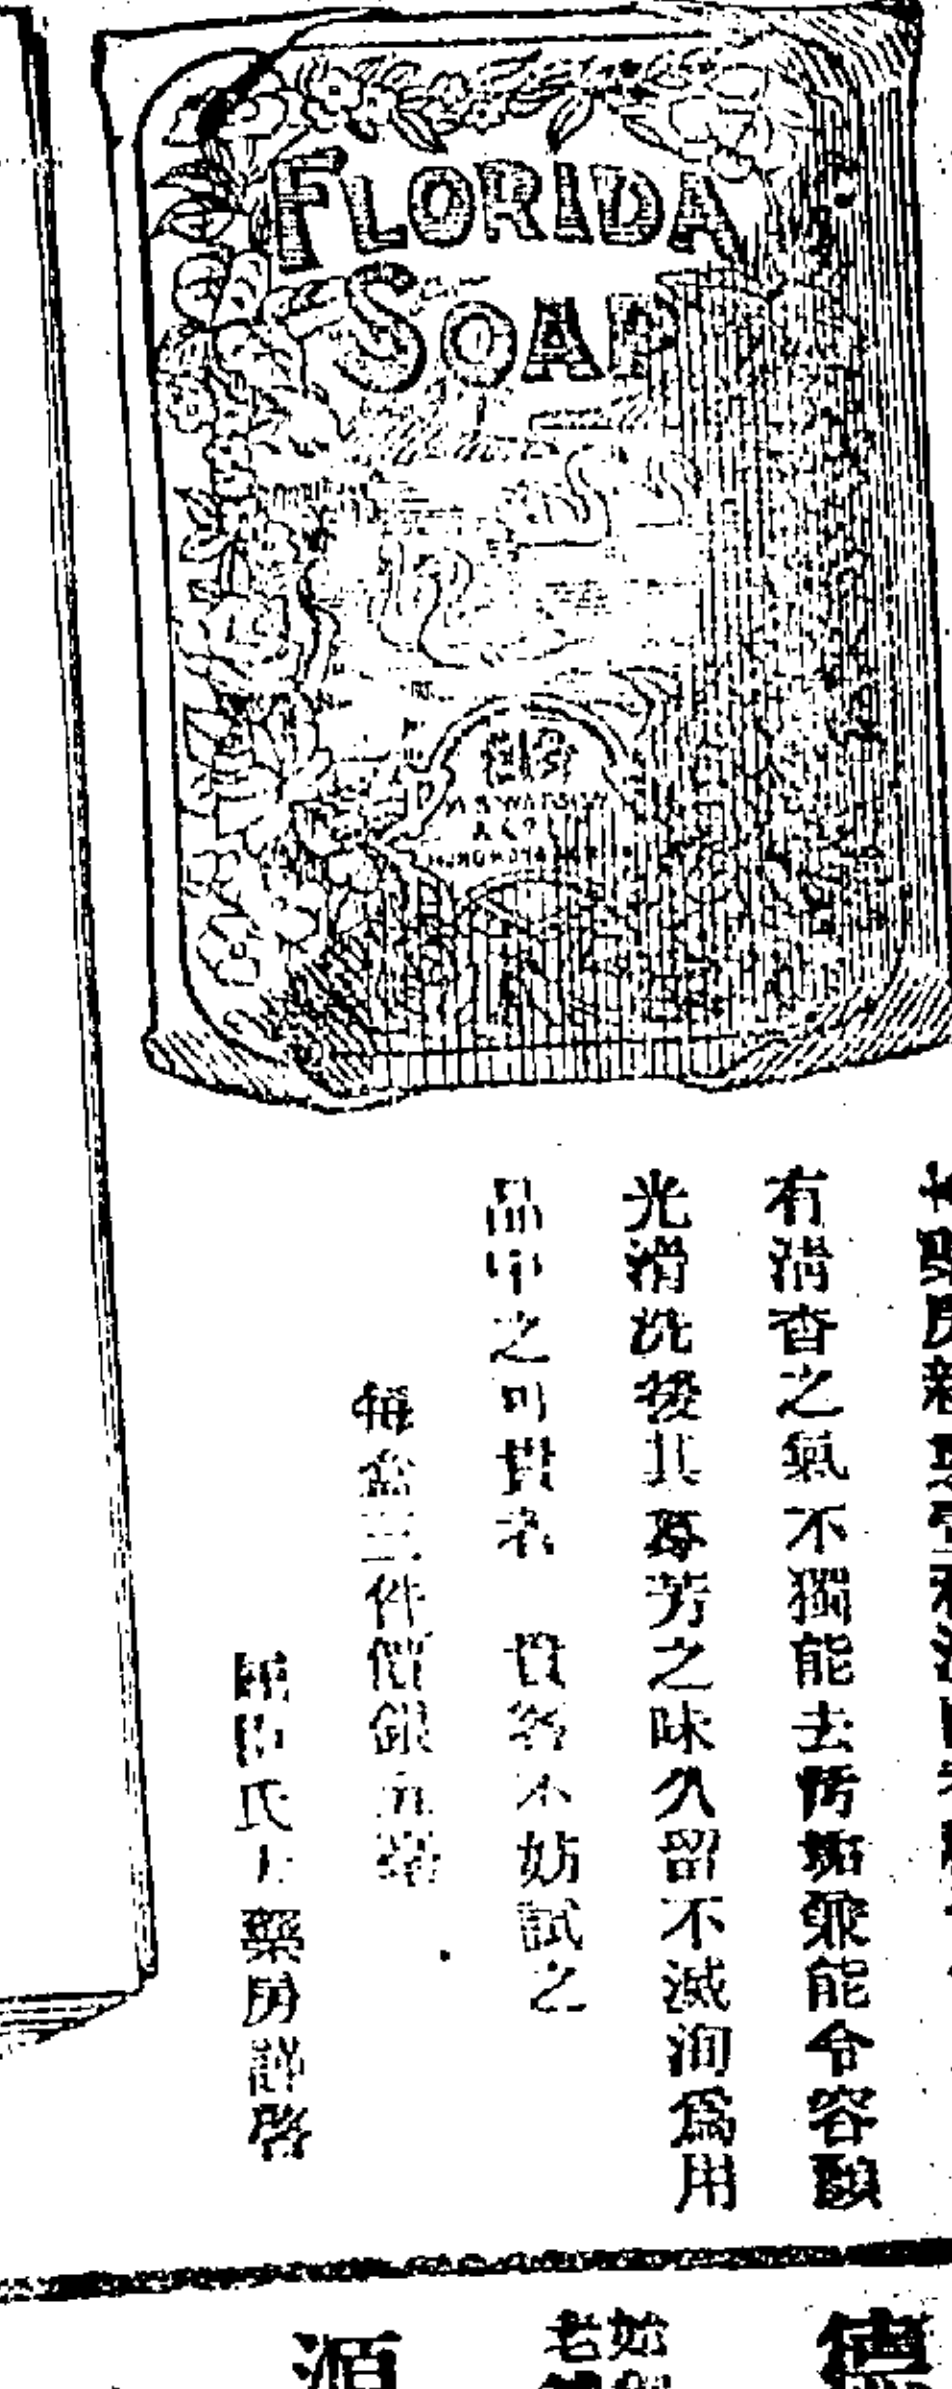 FLORIDA
SOAP
A.S. WATSON
& Co
HONGKONG
有清香之氣不獨能去污垢兼能令容顏
光滑洗後其馨芳之味久留不滅洵爲用
品中之可貴者 貴客不妨試之
每盒三件價銀五毫
屈臣氏大藥房謹啓
源
老
德